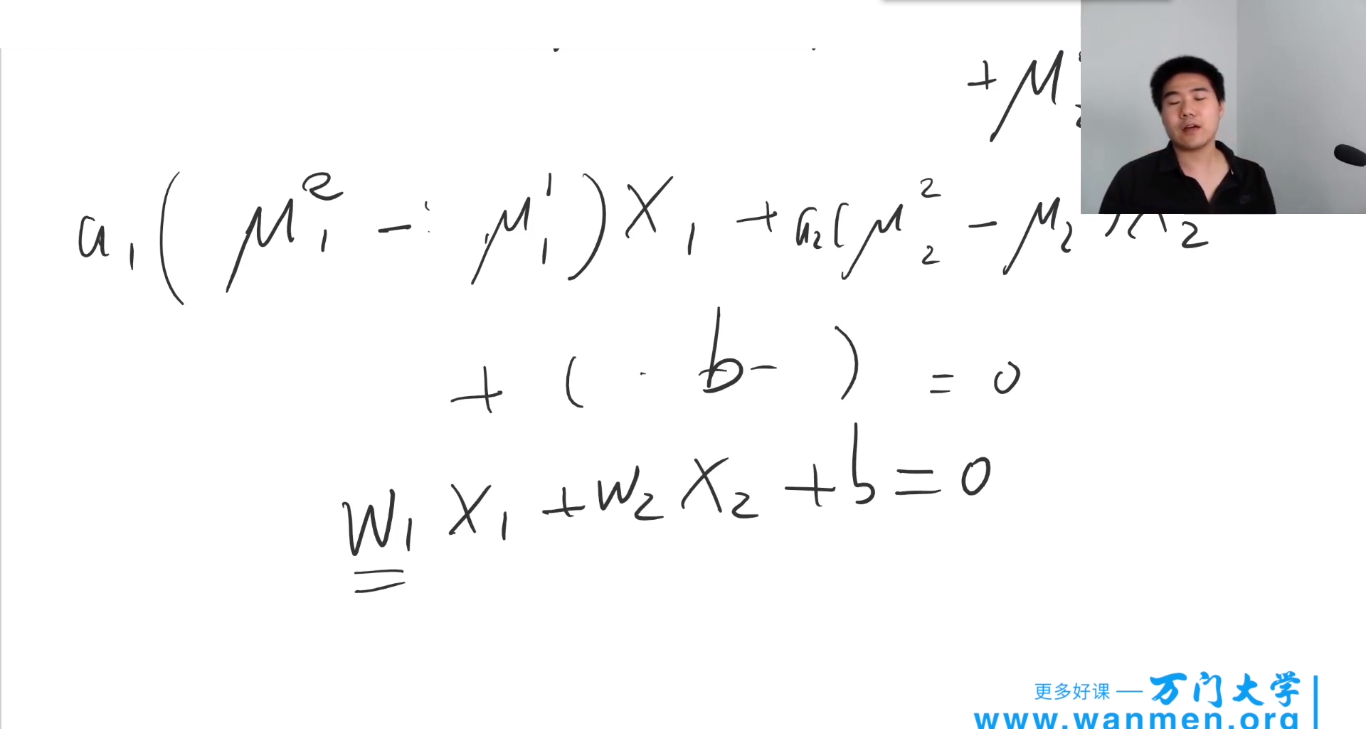 + μ
a₁( μ₁² - μ₁¹ ) X₁ + a₂( μ₂² - μ₂ ) X₂
+ ( · b - ) = 0
W₁ X₁ + W₂ X₂ + b = 0
更多好课 — 万门大学
www.wanmen.org